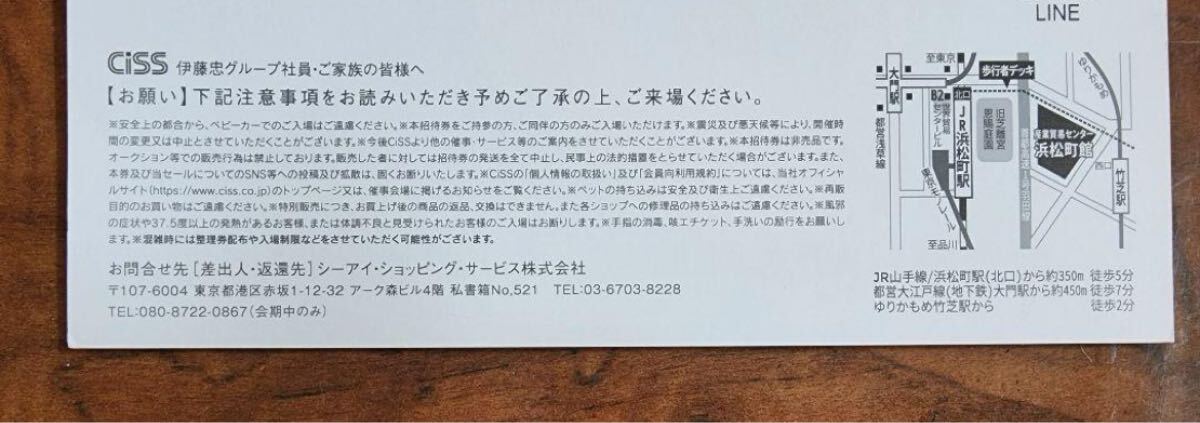 LINE
CiSS 伊藤忠グループ社員・ご家族の皆様へ
【お願い】下記注意事項をお読みいただき予めご了承の上、ご来場ください。
※安全上の都合から、ベビーカーでのご入場はご遠慮ください。※本招待券をご持参の方、ご同伴の方のみご入場いただけます。※震災及び悪天候等により、開催時
間の変更又は中止とさせていただくことがございます。※今後CiSSより他の催事・サービス等のご案内をさせていただくことがございます。※本招待券は非売品です。
オークション等での販売行為は禁止しております。販売した者に対しては招待券の発送を全て中止し、民事上の法的措置をとらせていただく場合がございます。また、
本券及び当セールについてのSNS等への投稿及び拡散は、固くお断りいたします。※CiSSの「個人情報の取扱い」及び「会員向利用規約」については、当社オフィシャ
ルサイト(https://www.ciss.co.jp)のトップページ又は、催事会場に掲げるお知らせをご覧ください。※ペットの持ち込みは安全及び衛生上ご遠慮ください。※再販
目的のお買い物はご遠慮ください。※特別販売につき、お買上げ後の商品の返品、交換はできません。また各ショップへの修理品の持ち込みはご遠慮ください。※風邪
の症状や37.5度以上の発熱があるお客様、または体調不良と見受けられたお客様のご入場はお断りします。※手指の消毒、咳エチケット、手洗いの励行をお願いし
ます。※混雑時には整理券配布や入場制限などをさせていただく可能性がございます。
お問合せ先[差出人・返還先]シーアイ・ショッピング・サービス株式会社
〒107-6004 東京都港区赤坂1-12-32 アーク森ビル4階 私書箱No,521 TEL:03-6703-8228
TEL:080-8722-0867(会期中のみ)
至東京
大門駅
B2
北口
歩行者デッキ
ゆりかもめ
都営浅草線
世界貿易
センタービル
JR浜松町駅
旧芝離宮
恩賜庭園
産業貿易センター
浜松町館
西口
竹芝駅
東京モノレール
至品川
JR山手線/浜松町駅(北口)から約350m 徒歩5分
都営大江戸線(地下鉄)大門駅から約450m 徒歩7分
ゆりかもめ竹芝駅から 徒歩2分